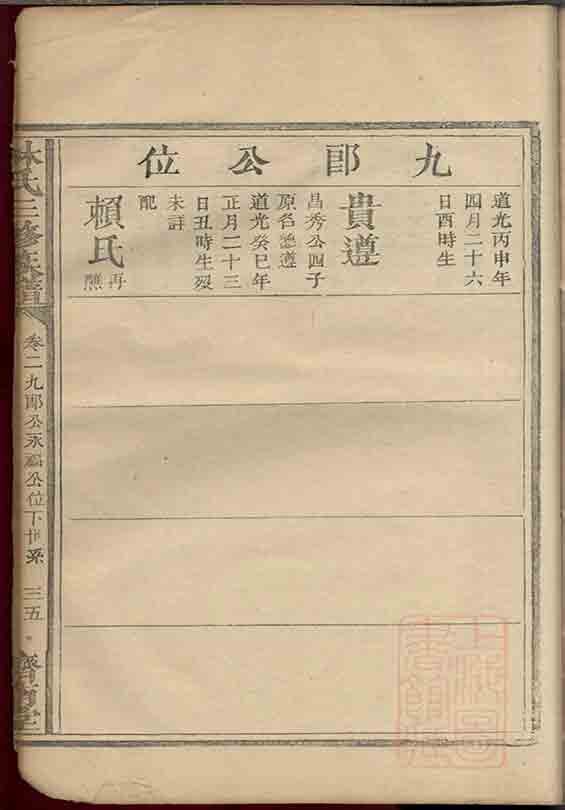 九郎公位
道光丙申年
四月二十六
日酉時生
貴遵
昌秀公四子
原名德遵
道光癸巳年
正月二十三
日丑時生歿
未詳
配
賴氏再醮
林氏三修族譜
卷二九郎公永福公位下世系
三五